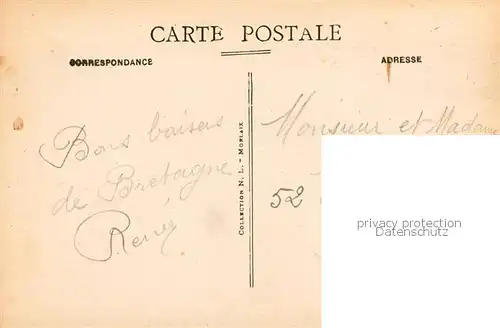 CARTE POSTALE
CORRESPONDANCE
ADRESSE
Bons baisers
de Bretagne
René
COLLECTION N. L. - MORLAIX
Monsieur et Madame
52
privacy protection
Datenschutz